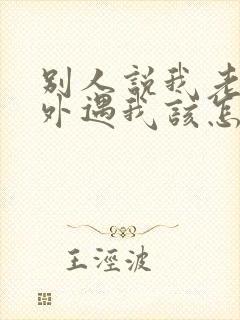 别人說我老
外遇我該怎
王涇波